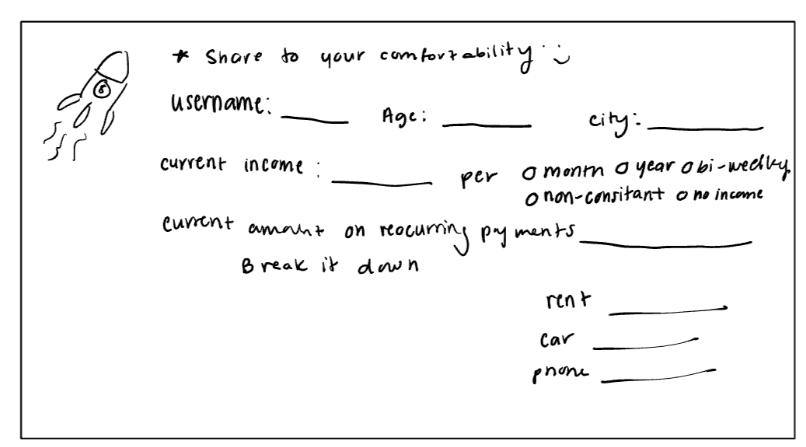 * Share to your comfortability :)
username: ____ Age: ____ city: ____
current income: ____ per o month o year o bi-weekly
o non-consitant o no income
current amount on reocurring payments ____
Break it down
rent ____
car ____
phone ____